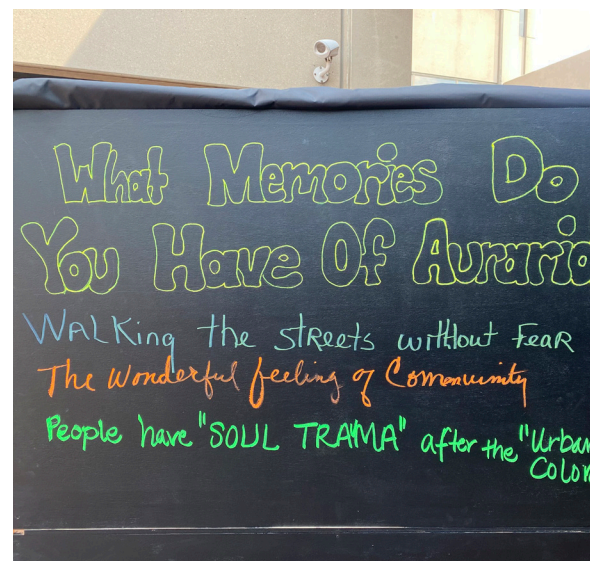 What Memories Do
You Have Of Auraria
WALKing the stReets without FeaR
The Wonderful feeling of Commuunity
People have "SOUL TRAMA" after the "Urban
Colon